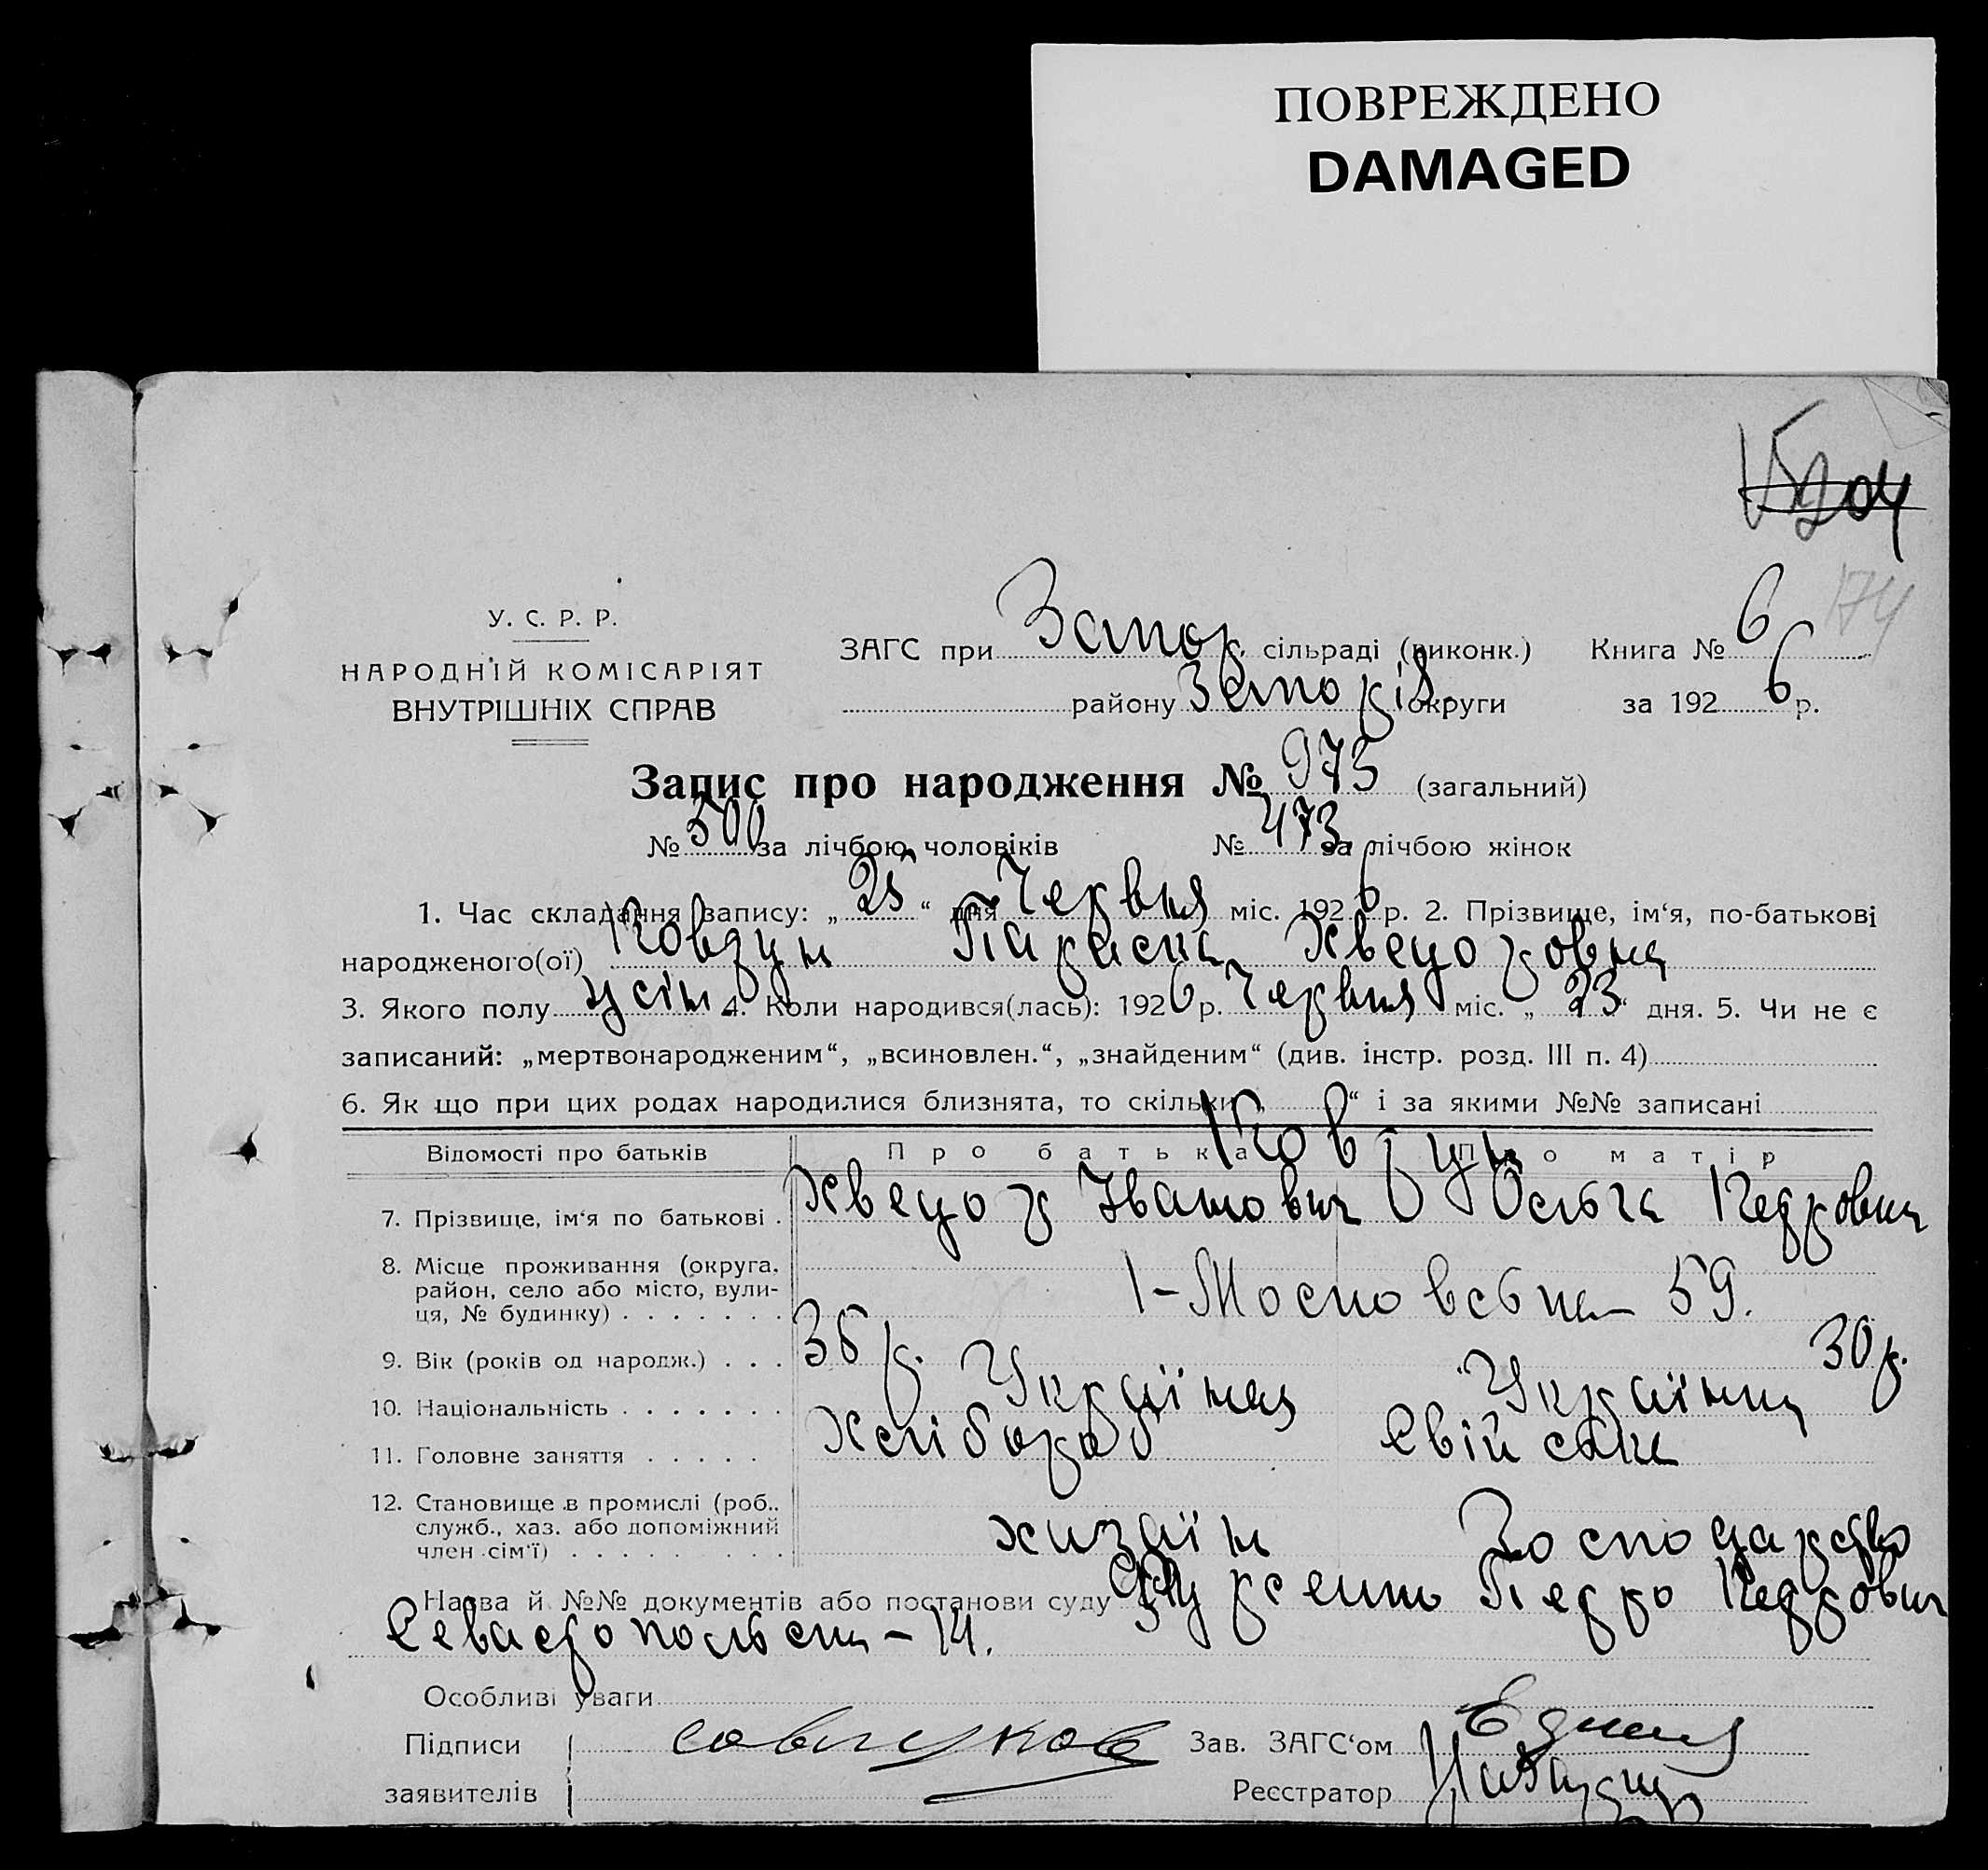 ПОВРЕЖДЕНО
DAMAGED
204
174
У. С. Р. Р.
НАРОДНІЙ КОМІСАРІЯТ
ВНУТРІШНІХ СПРАВ
ЗАГС при Запор. сільраді (виконк.) Книга № 6
району Запоріз. округи за 1926 р.
Запис про народження № 973 (загальний)
№ 500 за лічбою чоловіків № 473 за лічбою жінок
1. Час складання запису: „25“ дня Червня міс. 1926 р. 2. Прізвище, ім‘я, по-батькові
народженого(ої) Ковтун Параска Хведоровна
3. Якого полу жін 4. Коли народився(лась): 1926 р. Червня міс. „23“ дня. 5. Чи не є
записаний: „мертвонародженим“, „всиновлен.“, „знайденим“ (див. інстр. розд. III п. 4)
6. Як що при цих родах народилися близнята, то скільки „ “ і за якими №№ записані
Відомості про батьків Про батька Про матір
Ковтун
7. Прізвище, ім‘я по батькові . Хведор Іванович Ольга Петровна
8. Місце проживання (округа,
район, село або місто, вули-
ця, № будинку) . . . . . . . 1-Московська – 59.
9. Вік (років од народж.) . . . 36 р. 30 р.
10. Національність . . . . . . . Українец Українка
11. Головне заняття . . . . . Хлібороб Свій
12. Становище в промислі (роб.,
служб., хаз. або допоміжний
член сім‘ї) . . . . . . . . . хизаїн Госпо дарство
Назва й №№ документів або постанови суду Петро Петрович
Севастопольска – 14.
Особливі уваги
Підписи Зав. ЗАГС‘ом
заявителів Реєстратор